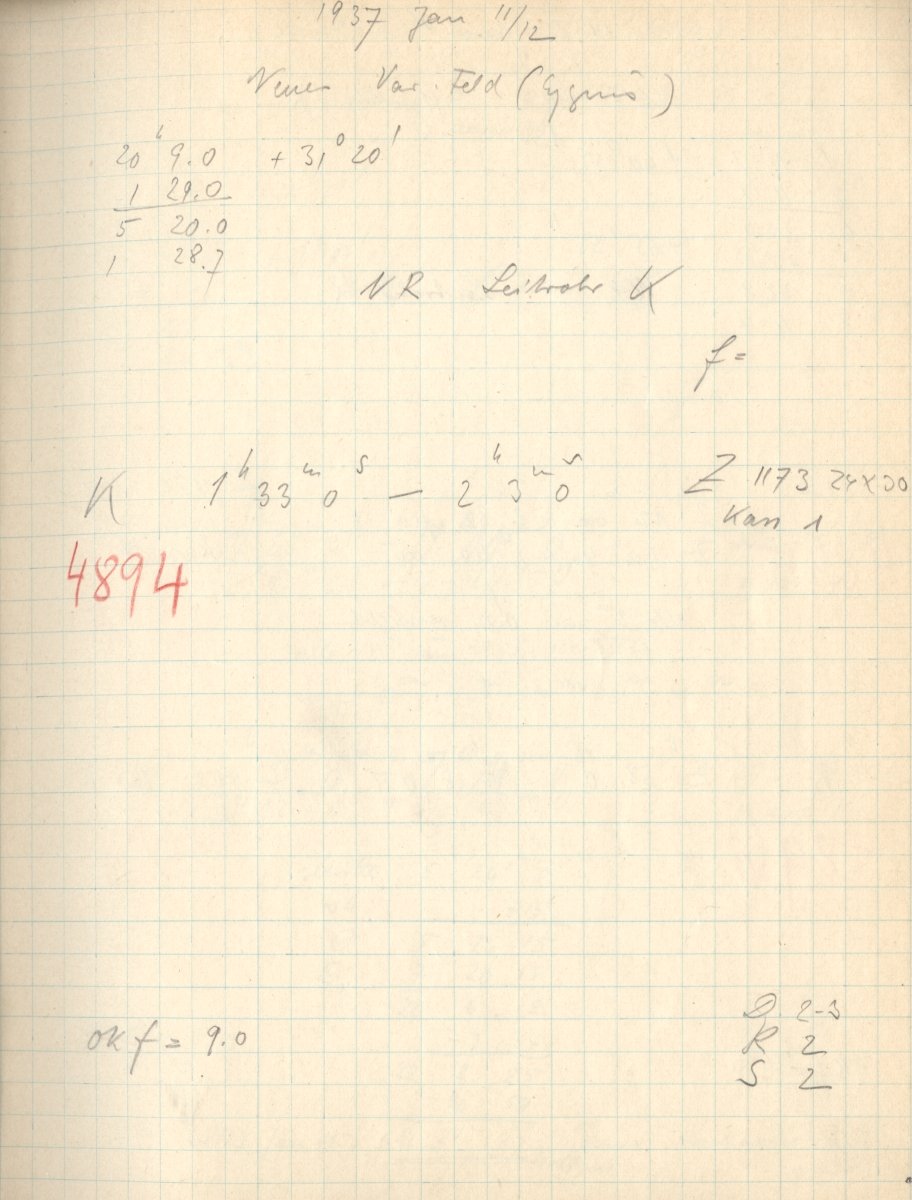 1937 Jan 11/12
Neues Var. Feld (Cygnus)
20ʰ 9.0 + 31° 20'
1 29.0
5 20.0
1 28.7
NR Leitrohr K
f =
K 1ʰ 33ᵐ 0ˢ — 2ʰ 3ᵐ 0ˢ Z 1173 24x30
Kass 1
4894
D 2-3
ok f = 9.0 R 2
S 2